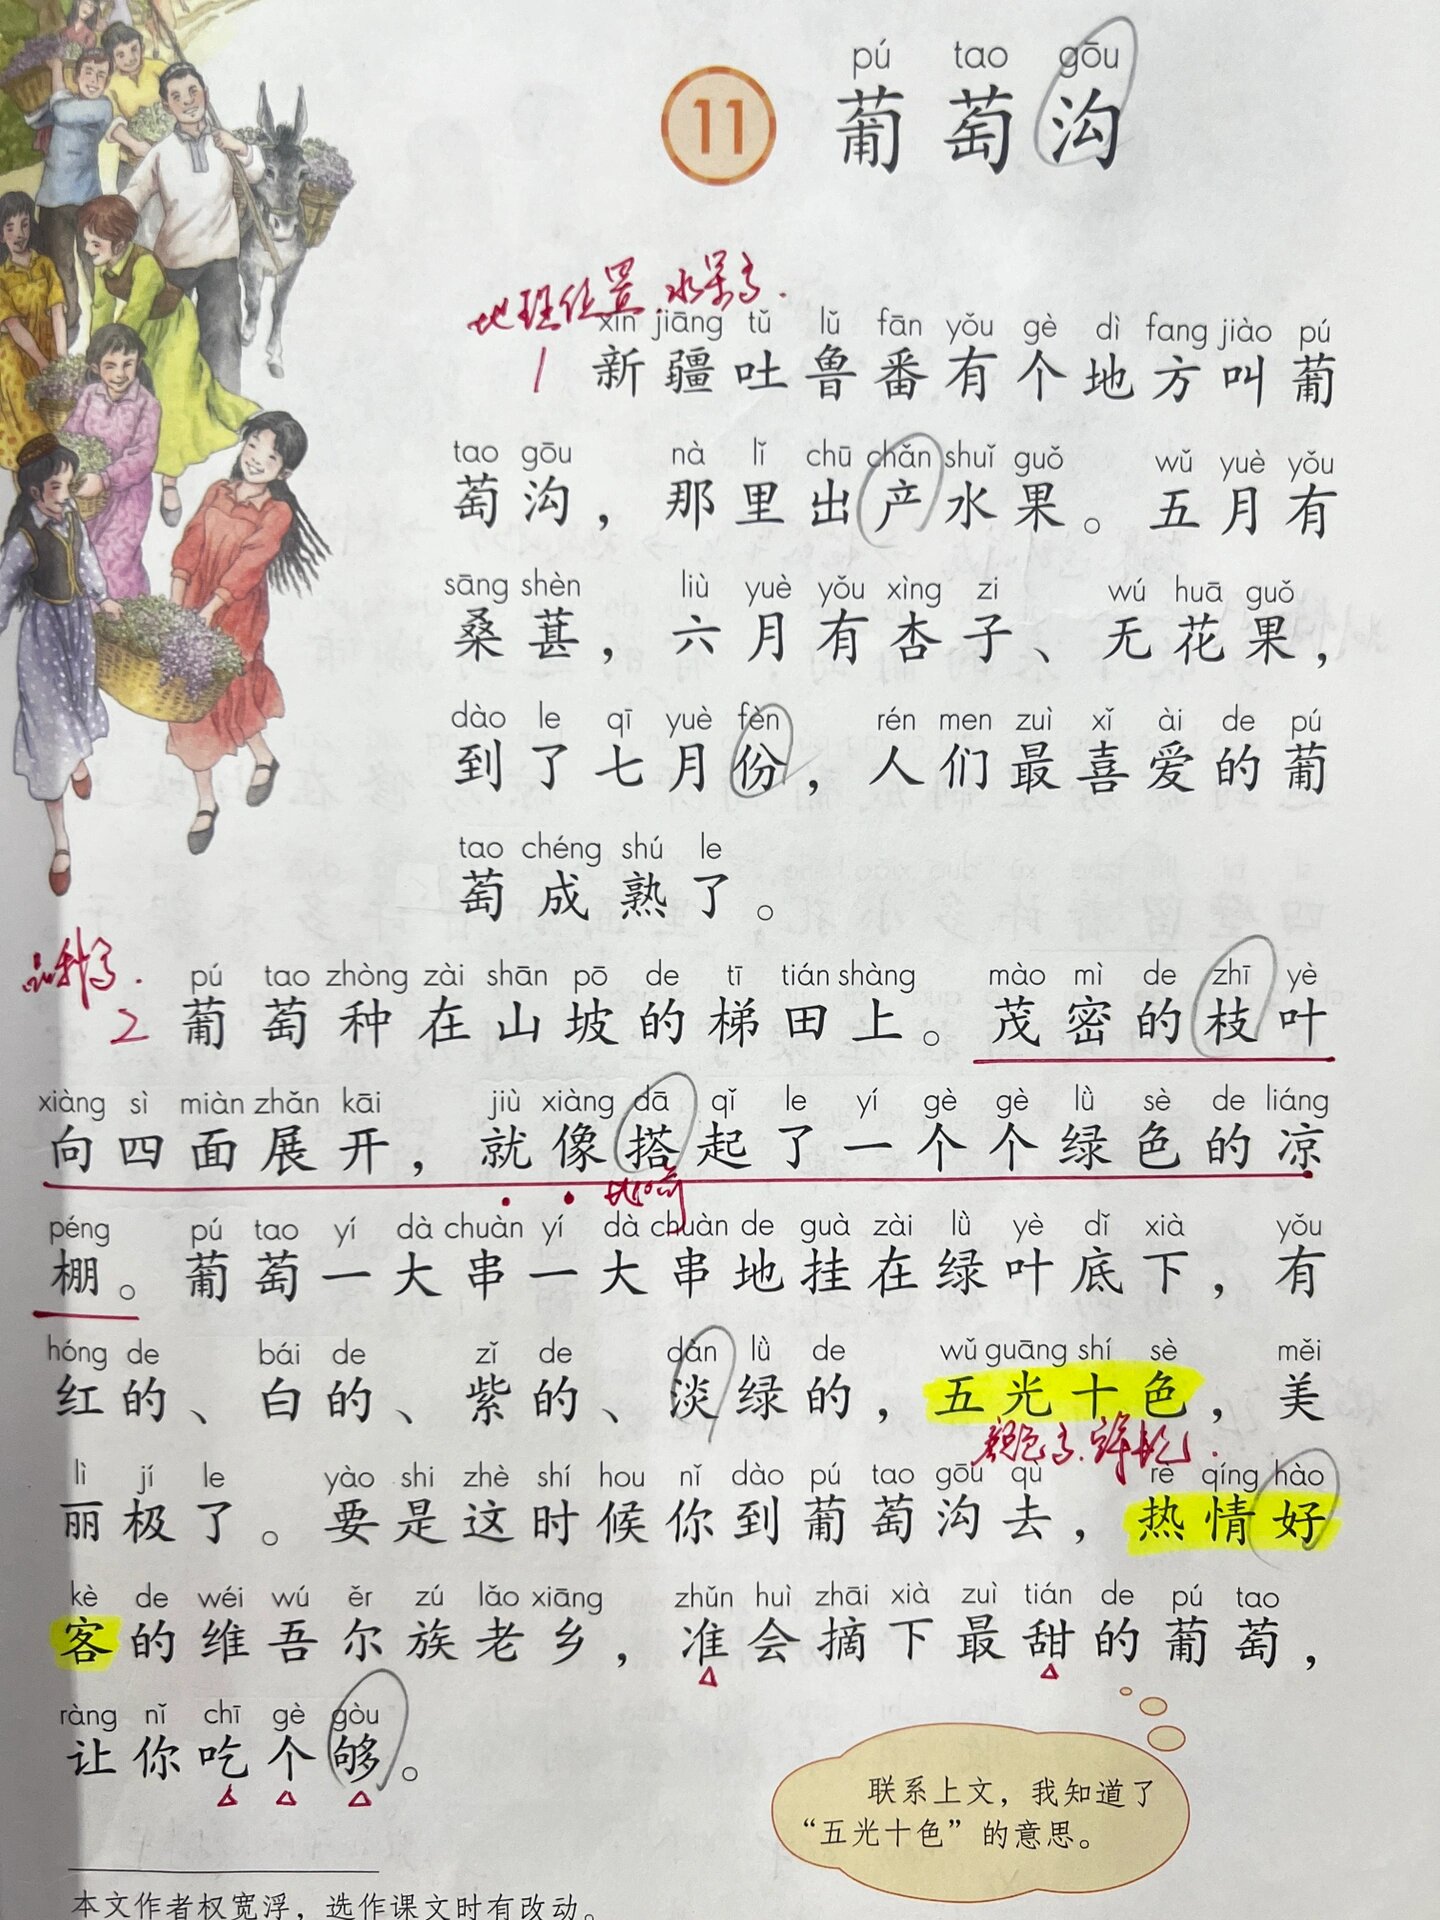 11
pú tao gōu
葡萄沟
地理位置 水果多.
xīn jiāng tǔ lǔ fān yǒu gè dì fang jiào pú
1 新疆吐鲁番有个地方叫葡
tao gōu nà lǐ chū chǎn shuǐ guǒ wǔ yuè yǒu
萄沟，那里出产水果。五月有
sāng shèn liù yuè yǒu xìng zi wú huā guǒ
桑葚，六月有杏子、无花果，
dào le qī yuè fèn rén men zuì xǐ ài de pú
到了七月份，人们最喜爱的葡
tao chéng shú le
萄成熟了。
品种多.
pú tao zhòng zài shān pō de tī tián shàng mào mì de zhī yè
2 葡萄种在山坡的梯田上。茂密的枝叶
xiàng sì miàn zhǎn kāi jiù xiàng dā qǐ le yí gè gè lǜ sè de liáng
向四面展开，就像搭起了一个个绿色的凉
péng pú tao yí dà chuàn yí dà chuàn de guà zài lǜ yè dǐ xià yǒu
棚。葡萄一大串一大串地挂在绿叶底下，有
hóng de bái de zǐ de dàn lǜ de wǔ guāng shí sè měi
红的、白的、紫的、淡绿的，五光十色，美
颜色多.鲜艳.
lì jí le yào shi zhè shí hou nǐ dào pú tao gōu qù rè qíng hào
丽极了。要是这时候你到葡萄沟去，热情好
kè de wéi wú ěr zú lǎo xiāng zhǔn huì zhāi xià zuì tián de pú tao
客的维吾尔族老乡，准会摘下最甜的葡萄，
ràng nǐ chī gè gòu
让你吃个够。
联系上文，我知道了
“五光十色”的意思。
本文作者权宽浮，选作课文时有改动。